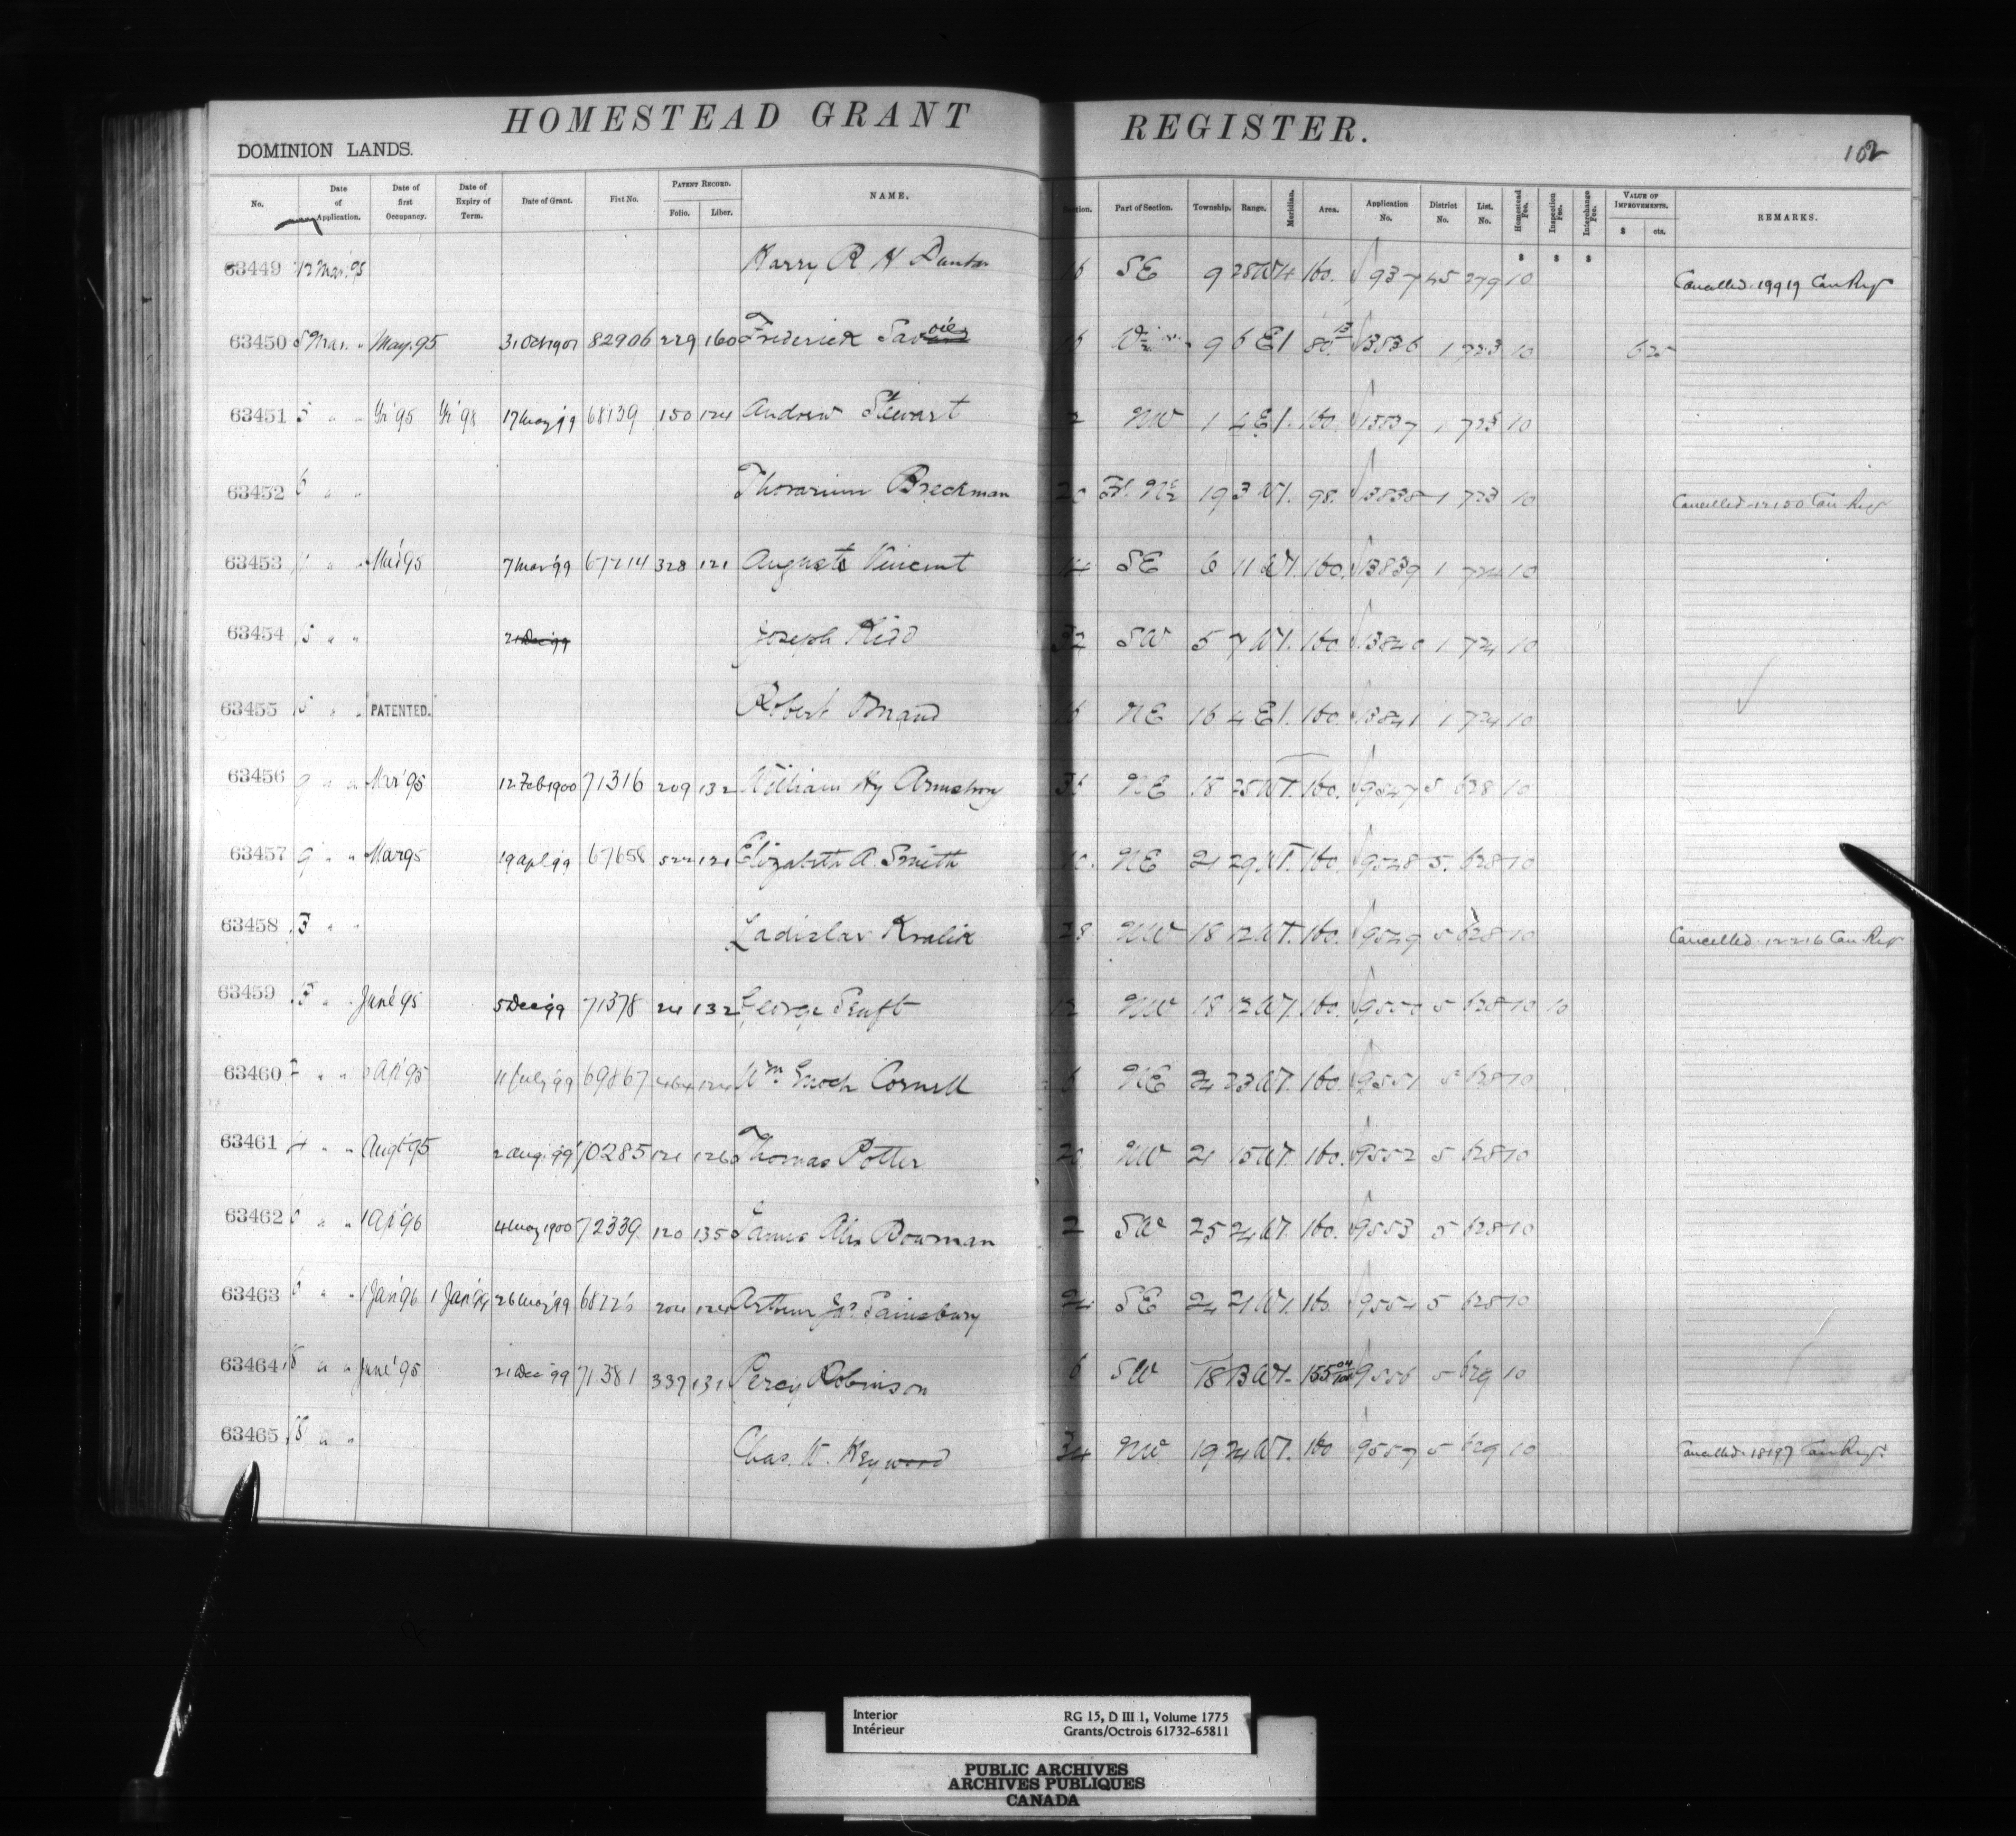 HOMESTEAD GRANT REGISTER.
DOMINION LANDS.
102
No. Date of Application. Date of first Occupancy. Date of Expiry of Term. Date of Grant. Fist No. PATENT RECORD. Folio. Liber. NAME. Part of Section. Township. Range. Meridian. Area. Application No. District No. List. No. Homestead Fee. Inspection Fee. Interchange Fee. VALUE OF IMPROVEMENTS. $ cts. REMARKS.
63449 12 Mar. 95 Harry R H 16 SE 9 28 W4 160. 937 45 279 10 Cancelled 19919 Can Regr
63450 5 Mar. " May. 95 31 Oct 1901 82906 229 160 Frederick 16 9 6 E1 80 13836 1 723 10 625
63451 5 " " 95 98 17 May 99 68139 150 124 Andrew Stewart 2 NW 1 4 E1. 160. 13837 1 723 10
63452 6 " " Thorarinn Breckman 20 Fl. N½ 19 3 W1. 98. 13838 1 723 10 Cancelled 12150 Can Regr
63453 " " 95 7 Mar 99 67214 328 121 Auguste Vincent 14 SE 6 11 W1. 160. 13839 1 724 10
63454 5 " " 21 Dec 99 Joseph Kidd 32 SW 5 7 W1. 160. 13840 1 724 10
63455 5 " " PATENTED. Robert Brand 16 NE 16 4 E1. 160. 13841 1 724 10
63456 9 " " Mar '95 12 Feb 1900 71316 209 132 William Hy Armstrong 36 NE 18 25 W1. 160. 9547 5 628 10
63457 9 " " Mar 95 19 Apl 99 67658 522 121 Elizabeth A. Smith 10. NE 21 29 W1. 160. 9548 5. 628 10
63458 " " Ladislav Kralik 28 NW 18 12 W1. 160. 9549 5 628 10 Cancelled 12216 Can. Regr
63459 " " June '95 5 Dec 99 71378 24 132 George 12 NW 18 12 W1. 160. 9550 5 628 10 10
63460 " " Apl '95 11 July 99 69867 464 124 Wm Enoch Cornell 6 NE 24 23 W1. 160. 9551 5 628 10
63461 4 " " Augt 95 2 Aug. 99 70285 121 126 Thomas Potter 20 NW 21 15 W1. 160. 9552 5 628 10
63462 6 " " 1 Apl '96 4 May 1900 72339 120 135 James Alex Bowman 2 SW 25 24 W1. 160. 9553 5 628 10
63463 6 " " 1 Jan '96 1 Jan '99 26 May 99 68226 204 124 Arthur Jas. Sainsbury 24 SE 24 21 W1. 160. 9554 5 628 10
63464 18 " " June '95 21 Dec 99 71381 337 131 Percy Robinson 6 SW 18 13 W1. 155 04/100 9556 5 629 10
63465 18 " " Chas. W. Keywood 34 NW 19 24 W1. 160 9557 5 629 10 Cancelled 18197 Can Regr
Interior
Intérieur
RG 15, D III 1, Volume 1775
Grants/Octrois 61732-65811
PUBLIC ARCHIVES
ARCHIVES PUBLIQUES
CANADA